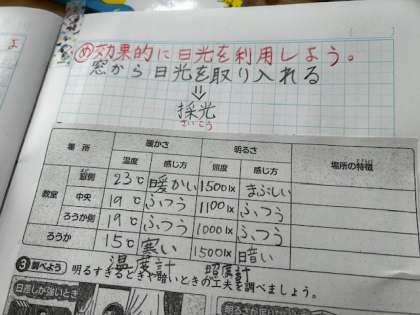 め 効果的に日光を利用しよう。
窓から日光を取り入れる
⇓
採光
さいこう
場所 暖かさ 明るさ 場所の特徴
温度 感じ方 照度 感じ方
教室 窓側 23℃ 暖かい 1500lx まぶしい
中央 19℃ ふつう 1100lx ふつう
ろうか側 19℃ ふつう 1000lx ふつう
ろうか 15℃ 寒い 1500lx 暗い
温度計 照度計
3 調べよう 明るすぎるときや暗いときの工夫を調べましょう。
日差しが強いとき